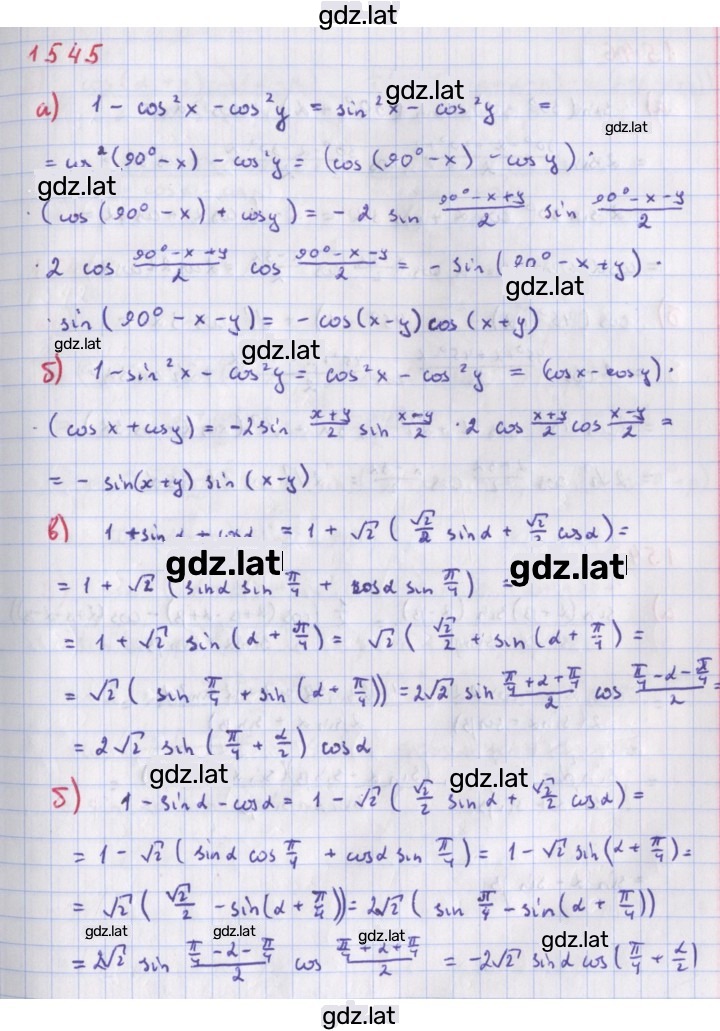 gdz.lat
1545
а) 1 - cos²x - cos²y = sin²x - cos²y =
= cos²(90° - x) - cos²y = (cos(90° - x) - cos y) ·
· (cos(90° - x) + cos y) = -2 sin (90° - x + y)/2 sin (90° - x - y)/2
· 2 cos (90° - x + y)/2 cos (90° - x - y)/2 = - sin(90° - x + y) ·
· sin(90° - x - y) = - cos(x - y) cos(x + y)
б) 1 - sin²x - cos²y = cos²x - cos²y = (cos x - cos y) ·
· (cos x + cos y) = -2 sin (x + y)/2 sin (x - y)/2 · 2 cos (x + y)/2 cos (x - y)/2 =
= - sin(x + y) sin(x - y)
в) 1 + sin α + cos α = 1 + √2 (√2/2 sin α + √2/2 cos α) =
= 1 + √2 (sin α sin π/4 + cos α sin π/4) =
= 1 + √2 sin(α + π/4) = √2 (√2/2 + sin(α + π/4) =
= √2 (sin π/4 + sin(α + π/4)) = 2√2 sin (π/4 + α + π/4)/2 cos (π/4 - α - π/4)/2 =
= 2√2 sin(π/4 + α/2) cos α
б) 1 - sin α - cos α = 1 - √2 (√2/2 sin α + √2/2 cos α) =
= 1 - √2 (sin α cos π/4 + cos α sin π/4) = 1 - √2 sin(α + π/4) =
= √2 (√2/2 - sin(α + π/4)) = 2√2 (sin π/4 - sin(α + π/4))
= 2√2 sin (π/4 - α - π/4)/2 cos (π/4 + α + π/4)/2 = -2√2 sin α cos(π/4 + α/2)
gdz.lat